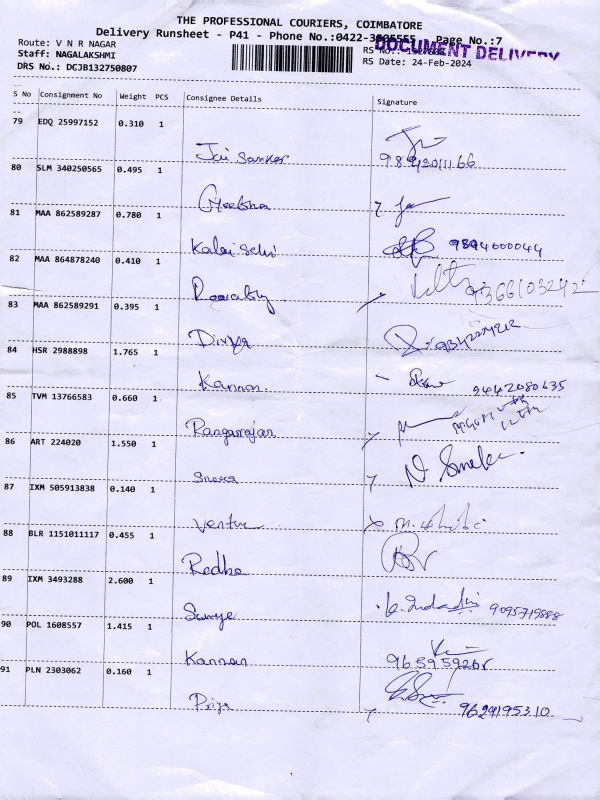 THE PROFESSIONAL COURIERS, COIMBATORE
Delivery Runsheet - P41 - Phone No.:0422- Page No.:7
Route: V N R NAGAR RS No.:
DOCUMENT DELIVERY
Staff: NAGALAKSHMI RS Date: 24-Feb-2024
DRS No.: DCJB132750807
S No Consignment No Weight PCS Consignee Details Signature
79 EDQ 25997152 0.310 1
Jai Sankar
80 SLM 340250565 0.495 1
Geetha
81 MAA 862589287 0.780 1
Kalai Selvi 9894600044
82 MAA 864878240 0.410 1
9366103242
83 MAA 862589291 0.395 1
Divya
84 HSR 2988898 1.765 1
Kannan 9442080635
85 TVM 13766583 0.660 1
Rangarajan
86 ART 224020 1.550 1
Sneka N. Sneka.
87 IXM 505913838 0.140 1
88 BLR 1151011117 0.455 1
Radha
89 IXM 3493288 2.600 1
Surya 9095719888
90 POL 1608557 1.415 1
Kannan
91 PLN 2303062 0.160 1
Priya 9629195310